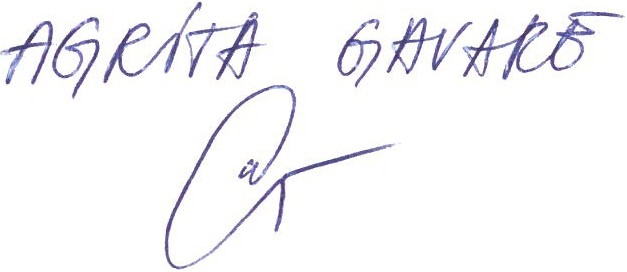 AGRITA GAVARE